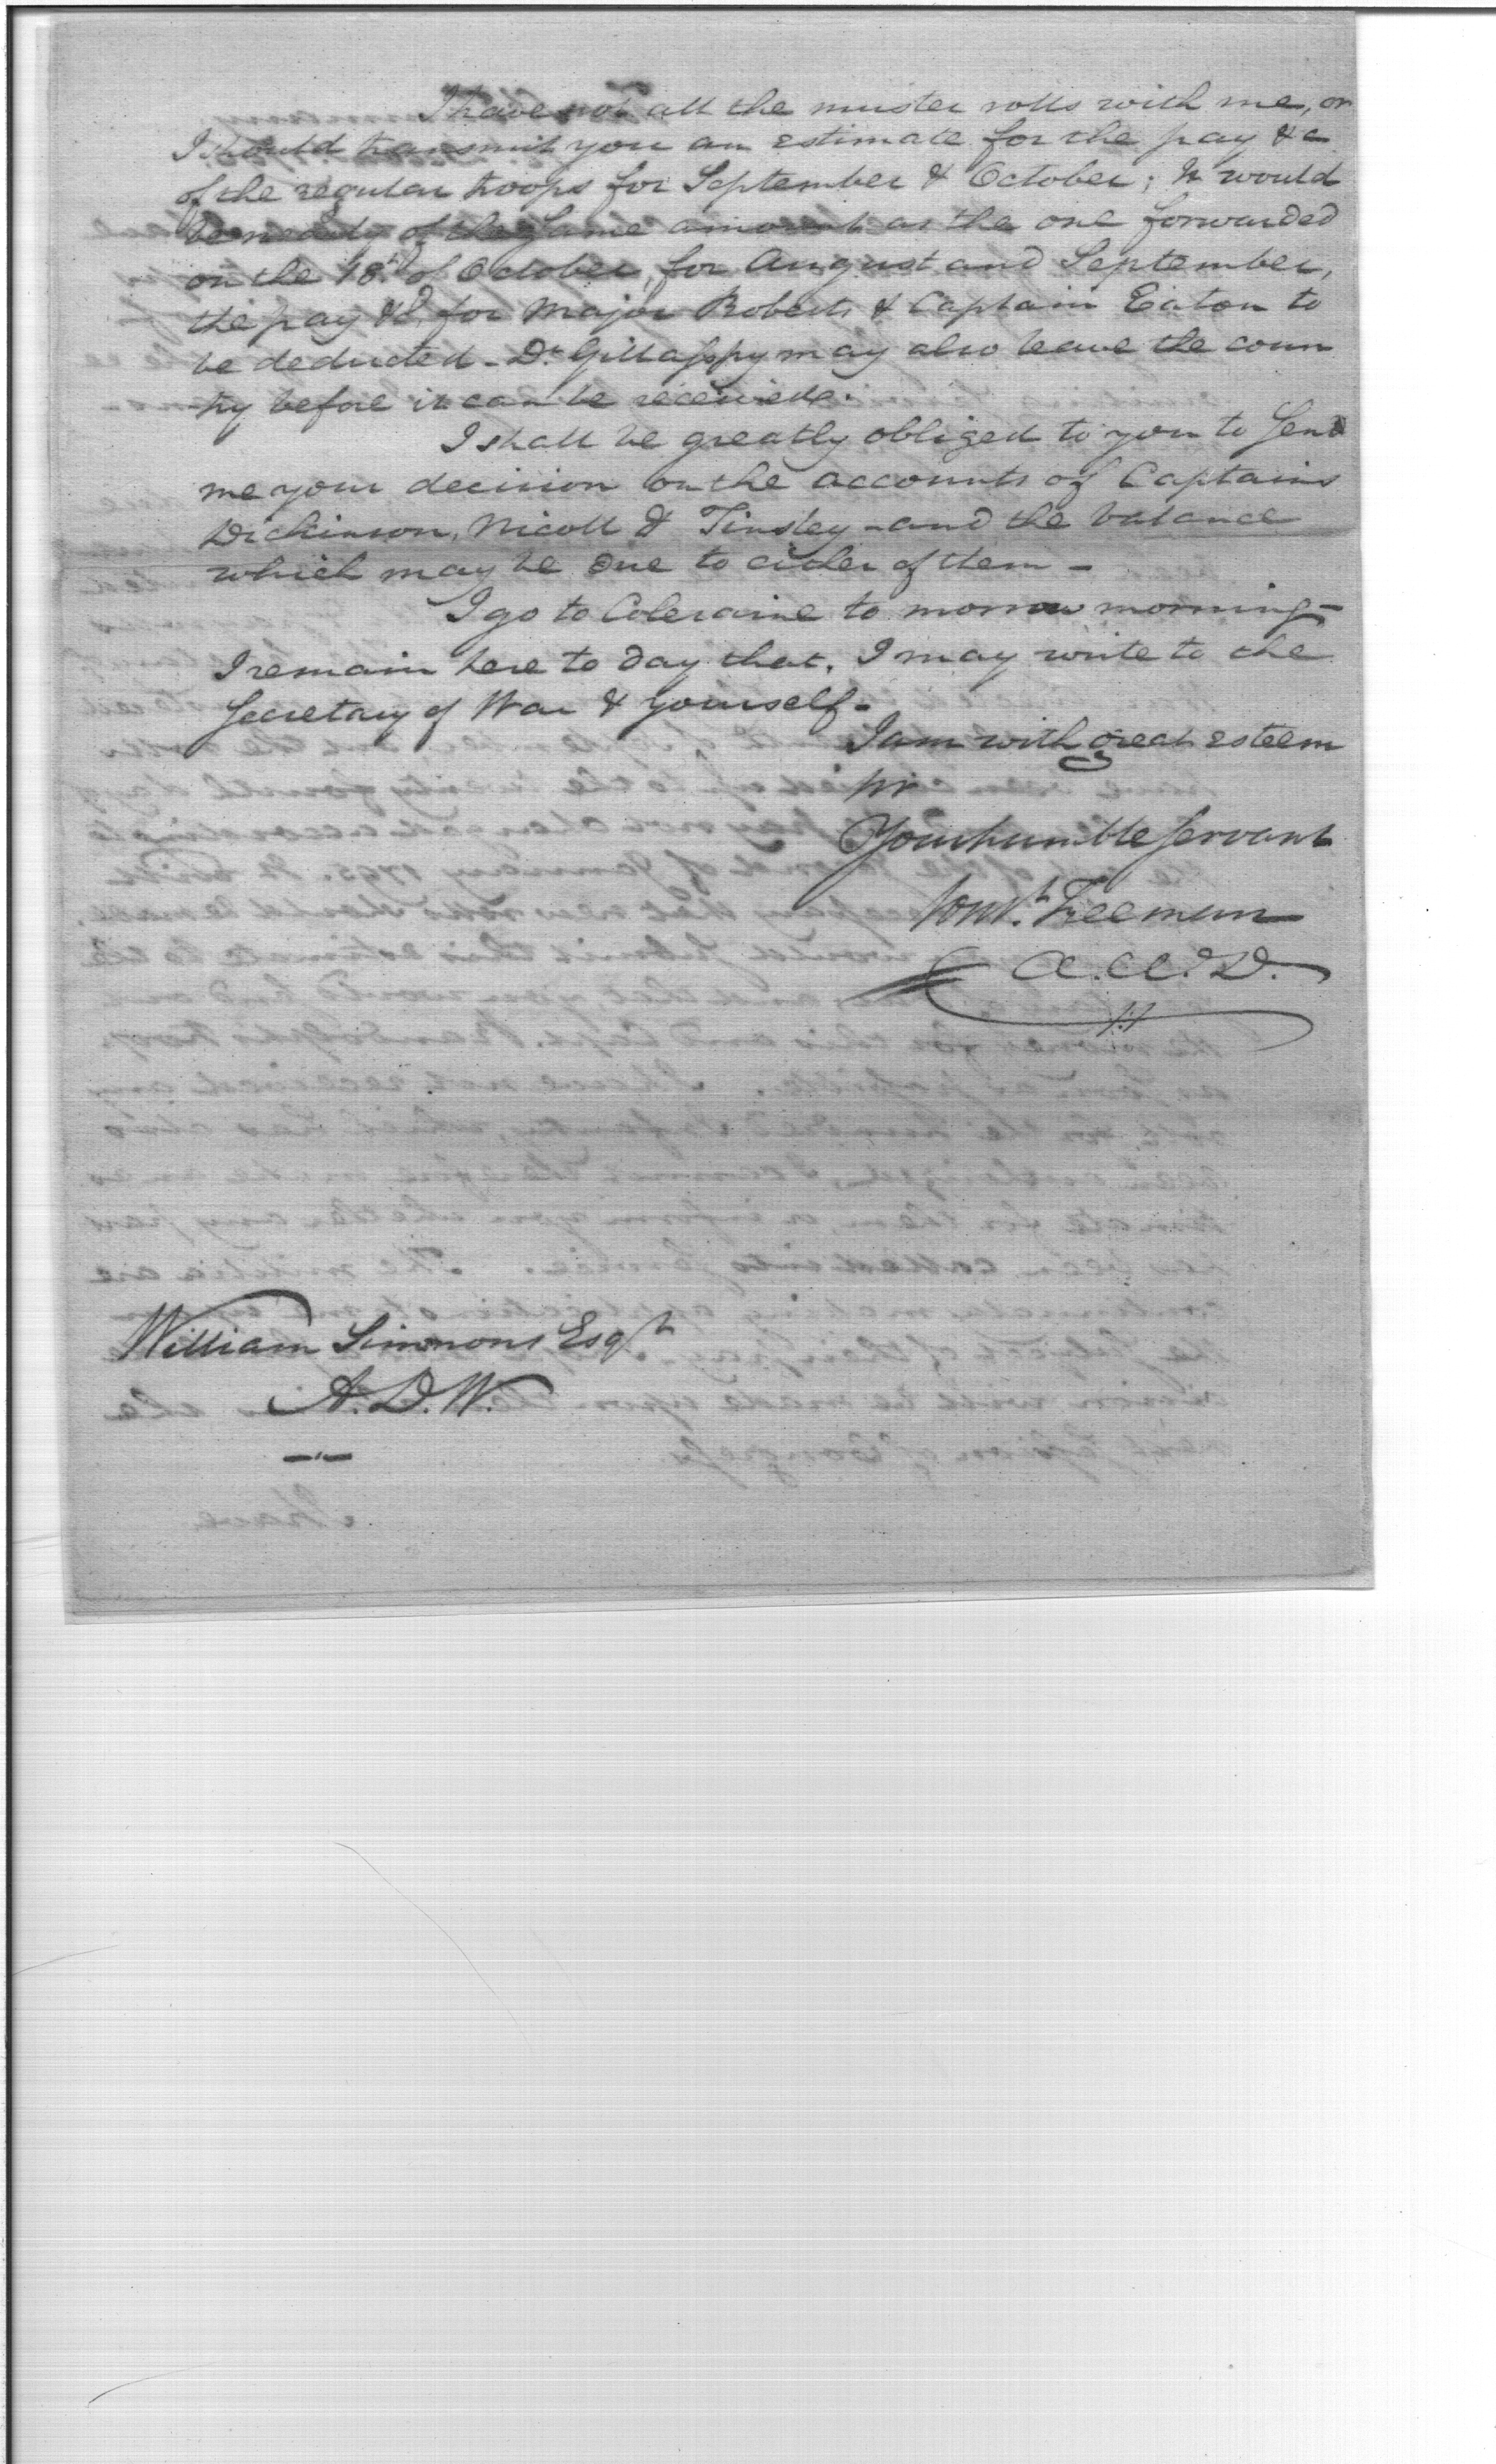 I have not all the muster rolls with me, or
I should transmit you an estimate for the pay &c
of the regular troops for September & October; it would
be nearly of the same amount as the one forwarded
on the 18th of October, for August and September,
the pay &c, for Major Roberts & Captain Eaton to
be deducted - Dr. Gillaspy may also leave the coun
try before it can be received.
I shall be greatly obliged to you to send
me your decision on the accounts of Captains
Dickinson, Nicoll & Tinsley - and the balance
which may be due to either of them -
I go to Coleraine to morrow morning -
I remain here to day that, I may write to the
Secretary of War & yourself -
I am with great esteem
Sir
Your humble servant
Const. Freeman
A. W. D.
William Simmons Esqr
A. D. W.